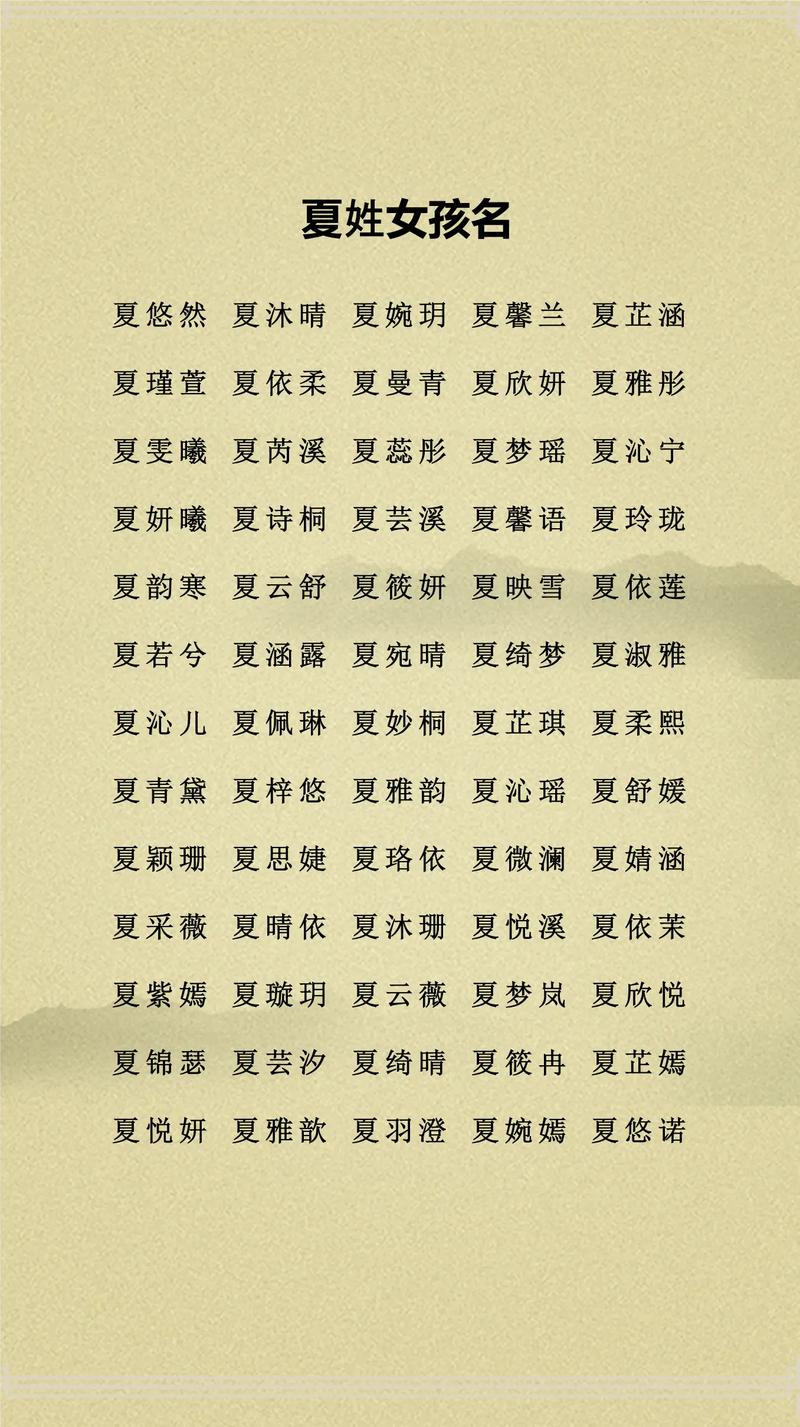 夏姓女孩名
夏悠然 夏沐晴 夏婉玥 夏馨兰 夏芷涵
夏瑾萱 夏依柔 夏曼青 夏欣妍 夏雅彤
夏雯曦 夏芮溪 夏蕊彤 夏梦瑶 夏沁宁
夏妍曦 夏诗桐 夏芸溪 夏馨语 夏玲珑
夏韵寒 夏云舒 夏筱妍 夏映雪 夏依莲
夏若兮 夏涵露 夏宛晴 夏绮梦 夏淑雅
夏沁儿 夏佩琳 夏妙桐 夏芷琪 夏柔熙
夏青黛 夏梓悠 夏雅韵 夏沁瑶 夏舒媛
夏颖珊 夏思婕 夏珞依 夏微澜 夏婧涵
夏采薇 夏晴依 夏沐珊 夏悦溪 夏依茉
夏紫嫣 夏璇玥 夏云薇 夏梦岚 夏欣悦
夏锦瑟 夏芸汐 夏绮晴 夏筱冉 夏芷嫣
夏悦妍 夏雅歆 夏羽澄 夏婉嫣 夏悠诺